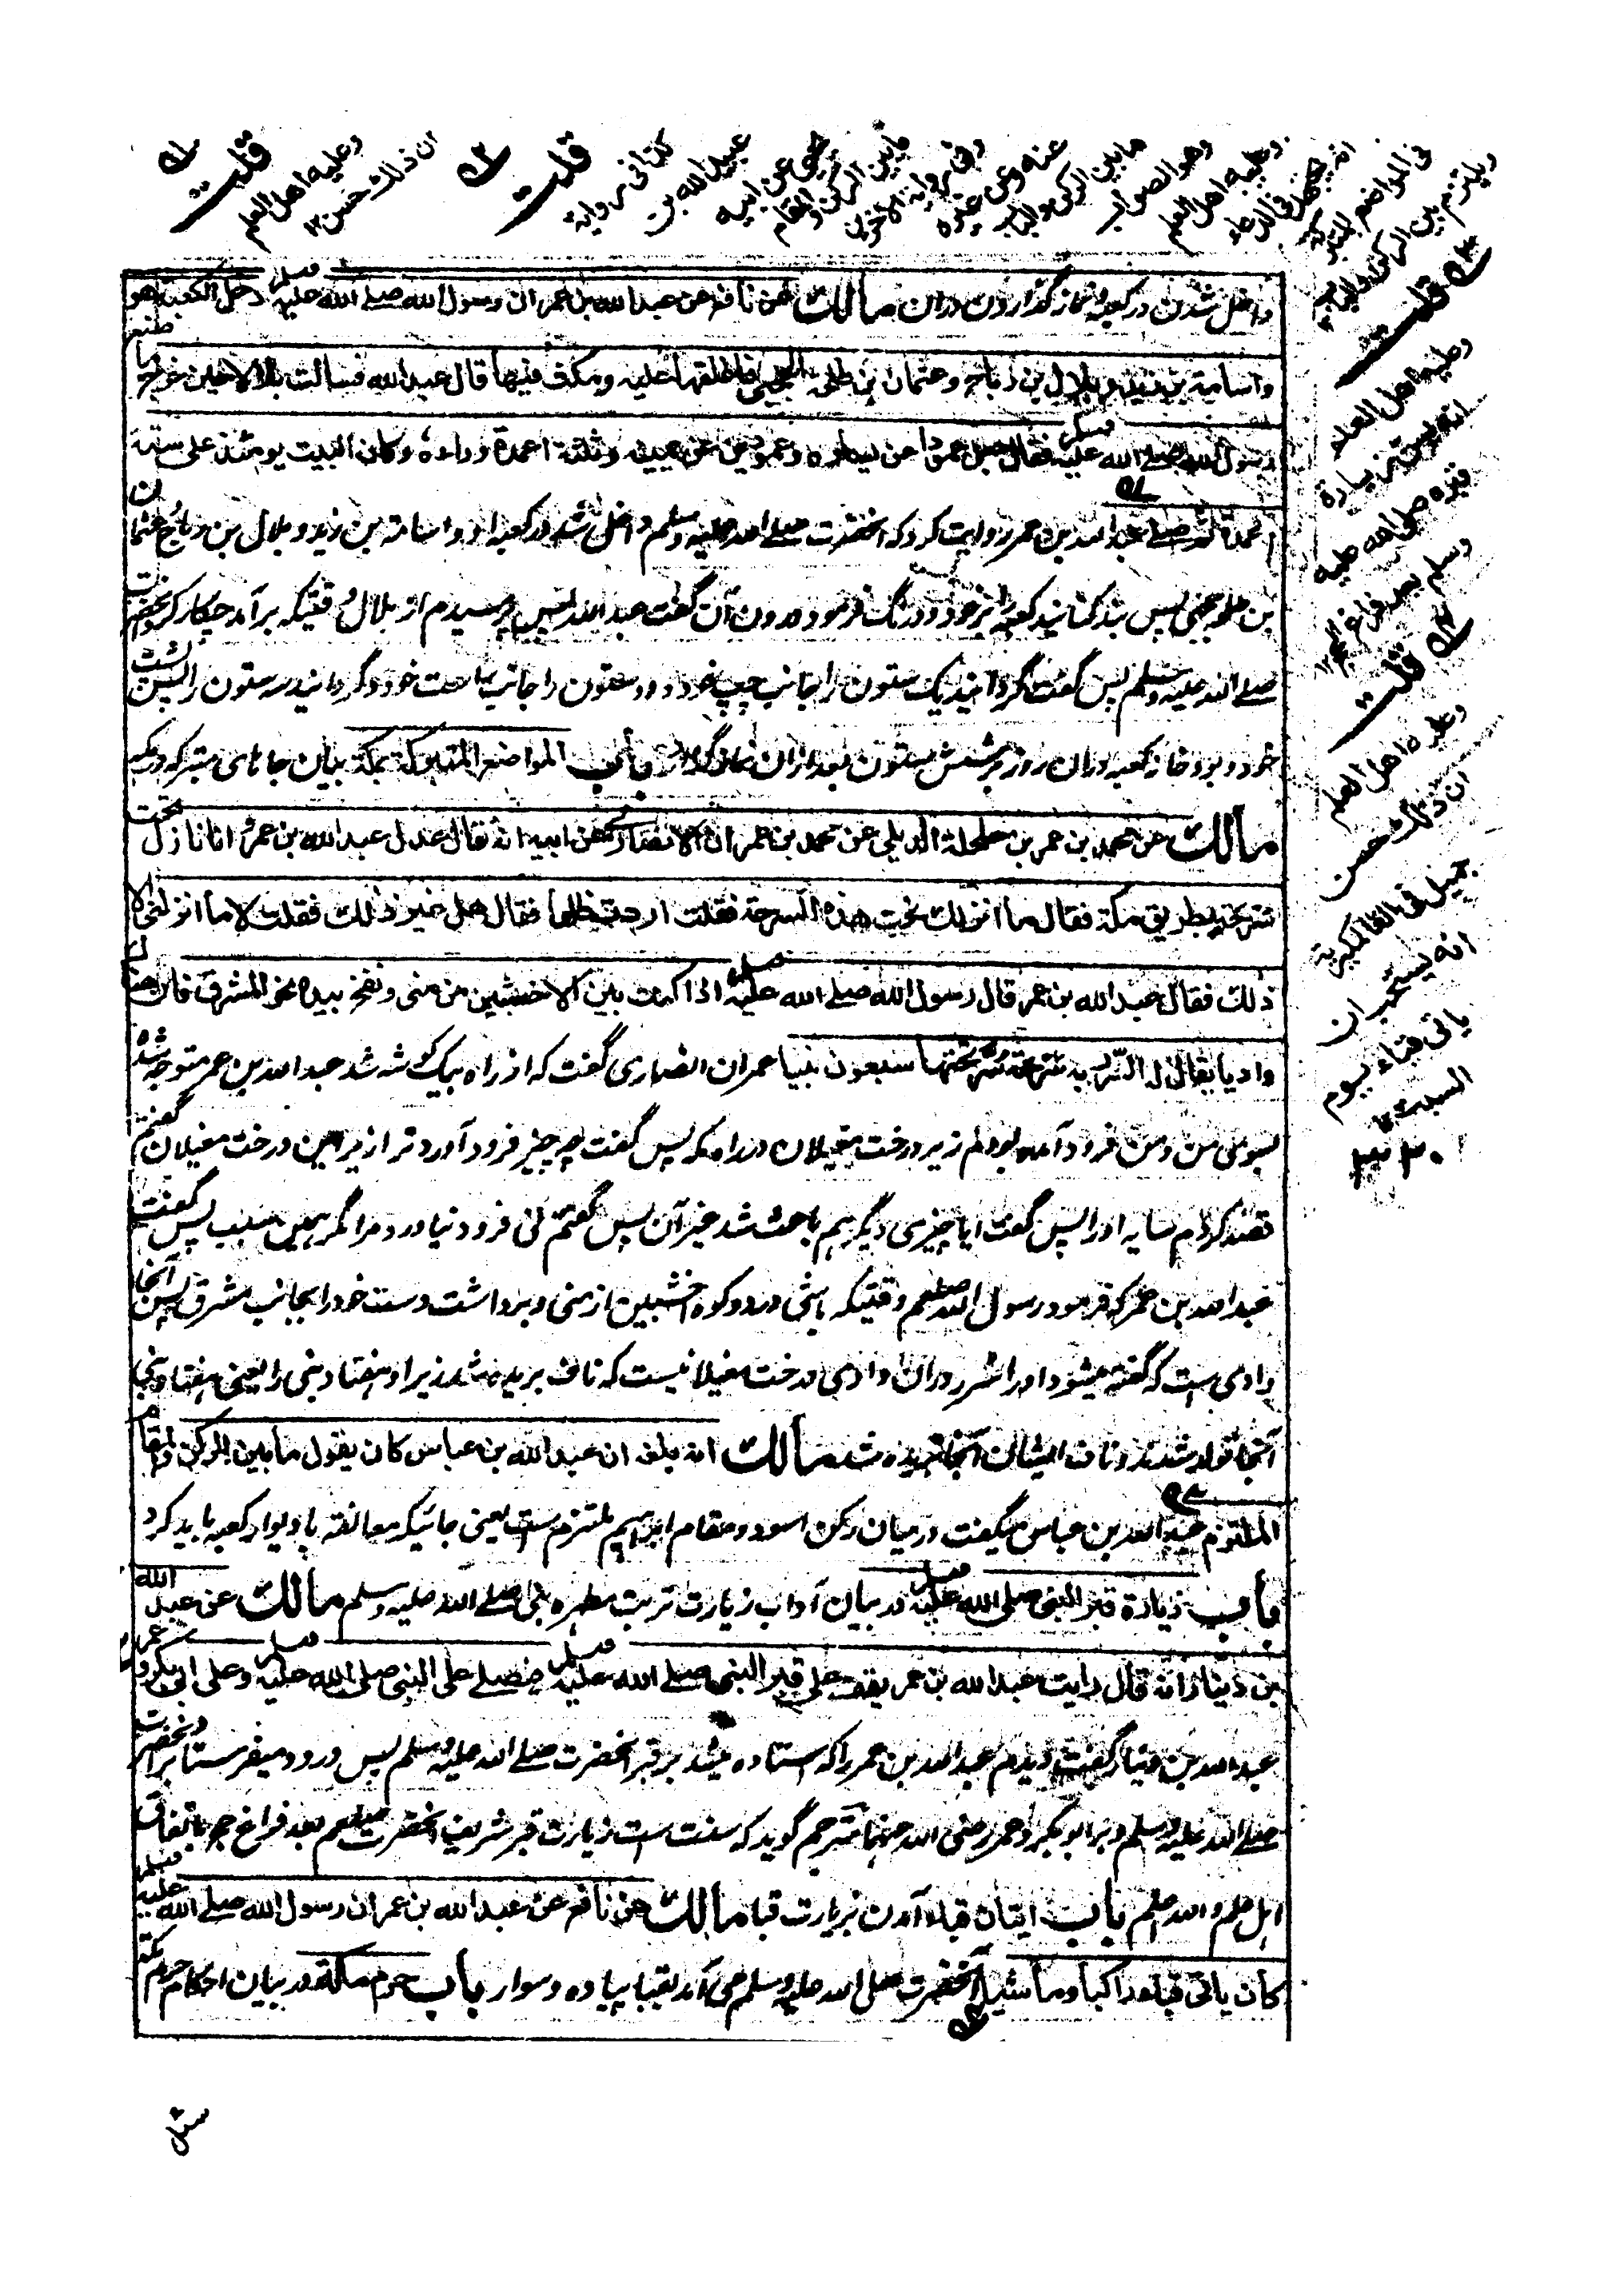 قلت وعليه اهل العلم ان ذلك حسن ١٢
قلت كذا في رواية عبيد الله بن يحيى عن ابيه ما بين الركن والمقام وفي رواية الاخرين عنه وعن غيره ما بين الركن والباب وهو الصواب وعليه اهل العلم انه يجتهد في الدعاء في المواضع المتبركة ويلتزم بين الركن والباب
داخل شدن در کعبه و نماز گذاردن دران مالك عن نافع عن عبد الله بن عمر ان رسول الله صلے الله عليه وسلم دخل الكعبة هو
واسامة بن زيد وبلال بن رباح وعثمان بن طلحة الحجبي فاغلقها عليه ومكث فيها قال عبد الله فسالت بلالا حين خرج ما صنع
رسول الله صلے الله عليه وسلم فقال جعل عمودا عن يساره وعمودين عن يمينه وثلثة اعمدة وراءه وكان البيت يومئذ على ستة
اعمدة ثم صلے عبد الله بن عمر روایت کرد که آنحضرت صلے الله علیه وسلم داخل شد در کعبه او و اسامة بن زید و بلال بن رباح و عثمان
بن طلحه حجبی پس بند کنانید کعبه را بر خود و درنگ فرمود درون آن گفت عبد الله پس پرسیدم از بلال وقتیکه برآمد چکار کرد آنحضرت
صلے الله علیه وسلم پس گفت گردانید یک ستون را جانب چپ خود و دو ستون را جانب راست خود و گردانید سه ستون را پس پشت
خود و بود خانه کعبه دران روز بر شش ستون بعد ازان نماز گذارد باب المواضع المتبركة بمكة بیان جاهای متبرکه در مکه
مالك عن محمد بن عمرو بن حلحلة الديلي عن محمد بن عمران الانصاري عن ابيه انه قال عدل الي عبد الله بن عمر وانا نازل تحت
سرحة بطريق مكة فقال ما انزلك تحت هذه السرحة فقلت اردت ظلها فقال هل غير ذلك فقلت لا ما انزلني الا
ذلك فقال عبد الله بن عمر قال رسول الله صلے الله عليه وسلم اذا كنت بين الاخشبين من منى ونفخ بيده نحو المشرق فان هناك
واديا يقال له السرر به سرحة سر تحتها سبعون نبيا عمران انصاری گفت که از راه بیک گوشه شد عبد الله بن عمر متوجه شده
بسوی من و من فرود آمده بودم زیر درخت مغیلان در راه مکه پس گفت چه چیز فرود آورد ترا زیر این درخت مغیلان گفتم
قصد کردم سایه او را پس گفت آیا چیزی دیگر هم باعث شد غیر آن پس گفتم نی فرود نیاورد مرا مگر همین سبب پس گفت
عبد الله بن عمر که فرمود رسول الله صلعم وقتیکه باشی در دو کوه اخشبین از منی و برداشت دست خود را بجانب مشرق پس آنجا
وادی ست که گفته میشود او را سرر دران وادی درخت مغیلانیست که ناف بریده شد زیر او هفتاد نبی را یعنی هفتاد نبی
آنجا تولد شدند و ناف ایشان آنجا بریده شد مالك انه بلغه ان عبد الله بن عباس كان يقول ما بين الركن والمقام
الملتزم عبد الله بن عباس میگفت درمیان رکن اسود و مقام ابراهیم ملتزم ست یعنی جائیکه معانقه با دیوار کعبه باید کرد
باب زيارة قبر النبي صلى الله عليه وسلم در بیان آداب زیارت تربت مطهره نبی صلے الله علیه وسلم مالك عن عبد الله
بن دينار انه قال رايت عبد الله بن عمر يقف على قبر النبي صلے الله عليه وسلم فيصلے على النبي صلى الله عليه وسلم وعلى ابي بكر وعمر
عبد الله بن دینار گفت دیدم عبد الله بن عمر را که استاده میشد بر قبر آنحضرت صلے الله علیه وسلم پس درود میفرستاد بر آنحضرت
صلے الله علیه وسلم و بر ابو بکر و عمر رضی الله عنهما مترجم گوید که سنت ست زیارت قبر شریف آنحضرت صلعم بعد فراغ حج باتفاق
اهل علم والله اعلم باب اتیان قباء آمدن بزیارت قبا مالك عن نافع عن عبد الله بن عمر ان رسول الله صلے الله عليه وسلم
كان ياتي قباء راكبا وماشيا آنحضرت صلی الله علیه وسلم می آمد بقبا پیاده و سوار باب حرم مكة در بیان احکام حرم مکه
قلت
وعليه اهل العلم
انه يستحب زيارة
قبره صلى الله عليه
وسلم بعد فراغ الحج ١٢
قلت
وعليه اهل العلم
ان ذلك حسن
جميل في العالمكيرية
انه يستحب ان
ياتي قباء يوم
السبت ١٢